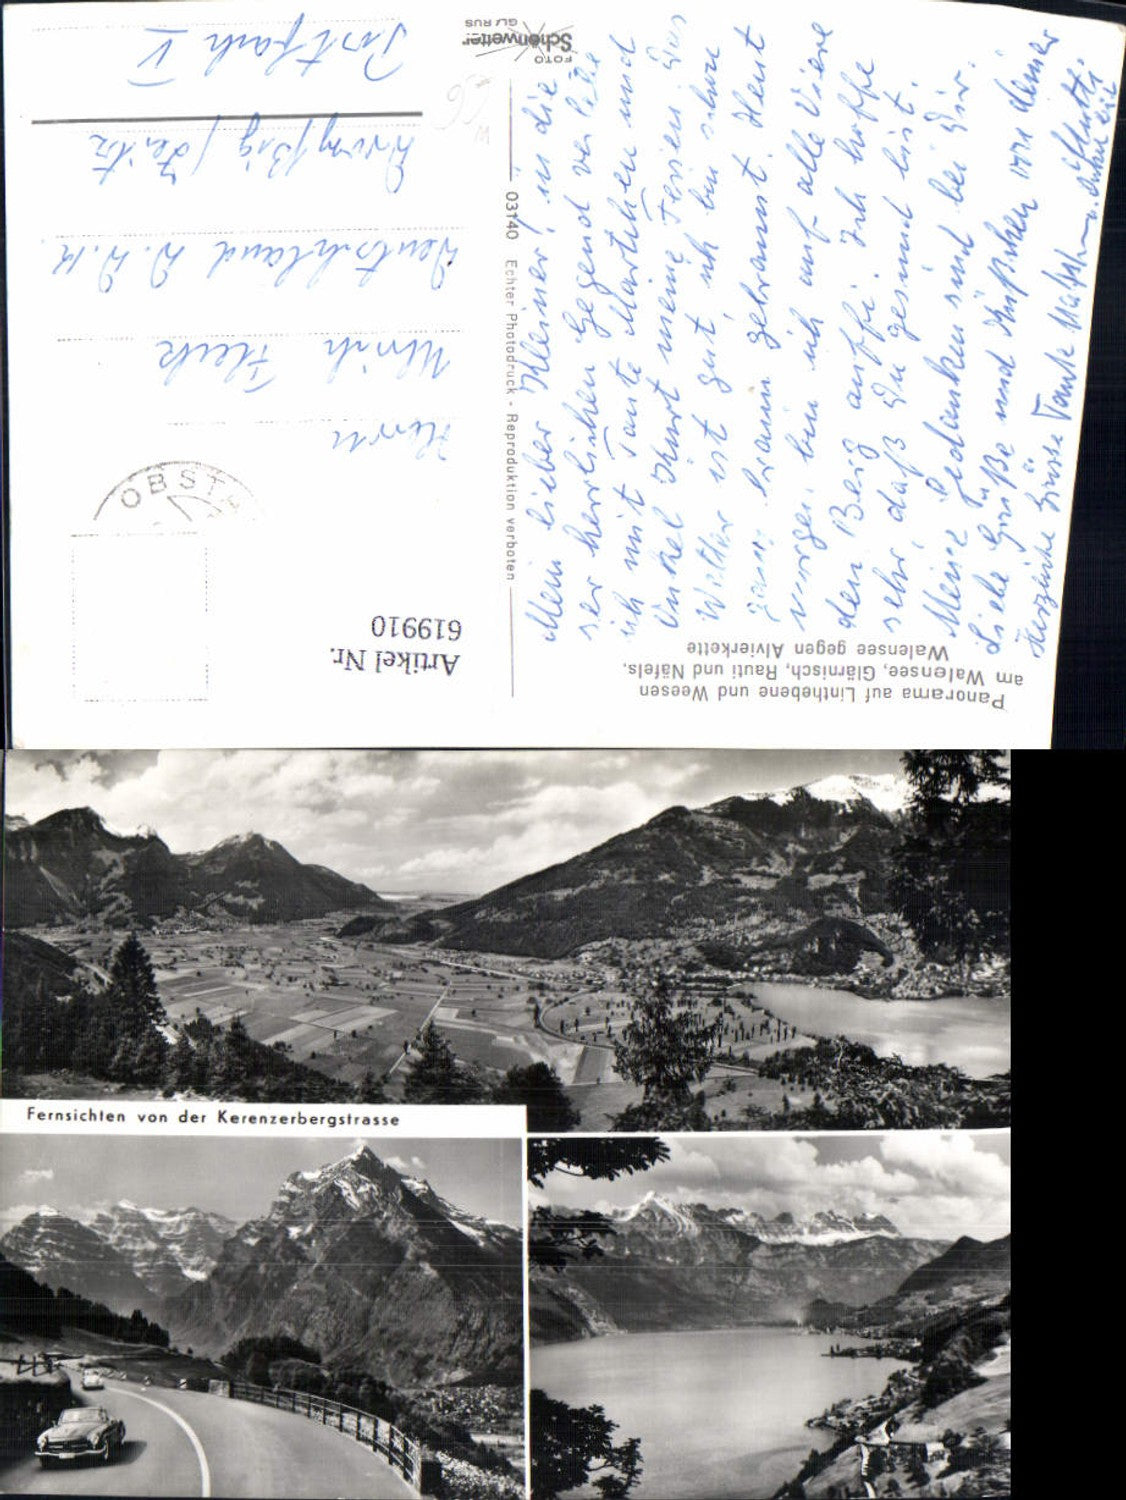 Panorama auf Linthebene und Weesen
am Walensee, Glärnisch, Rauti und Näfels,
Walensee gegen Alvierkette
Mein lieber Kleiner, in die
ser herrlichen Gegend verlebe
ich mit Tante Marthchen und
Onkel Kurt meine Ferien. Das
Wetter ist gut, ich bin schon
ganz braun gebrannt. Heut
morgen bin ich auf alle Viere
den Berg auffi. Ich hoffe
sehr, daß Du gesund bist.
Meine Gedanken sind bei Dir.
Liebe Grüße und Küßchen von deiner
Herzliche Grüsse Tante
03140 Echter Photodruck - Reproduktion verboten
FOTO
Schönwetter
GLARUS
Artikel Nr.
619910
OBST
Herrn
Ulrich Fleck
Deutschland D.D.R.
Postfach V
Fernsichten von der Kerenzerbergstrasse